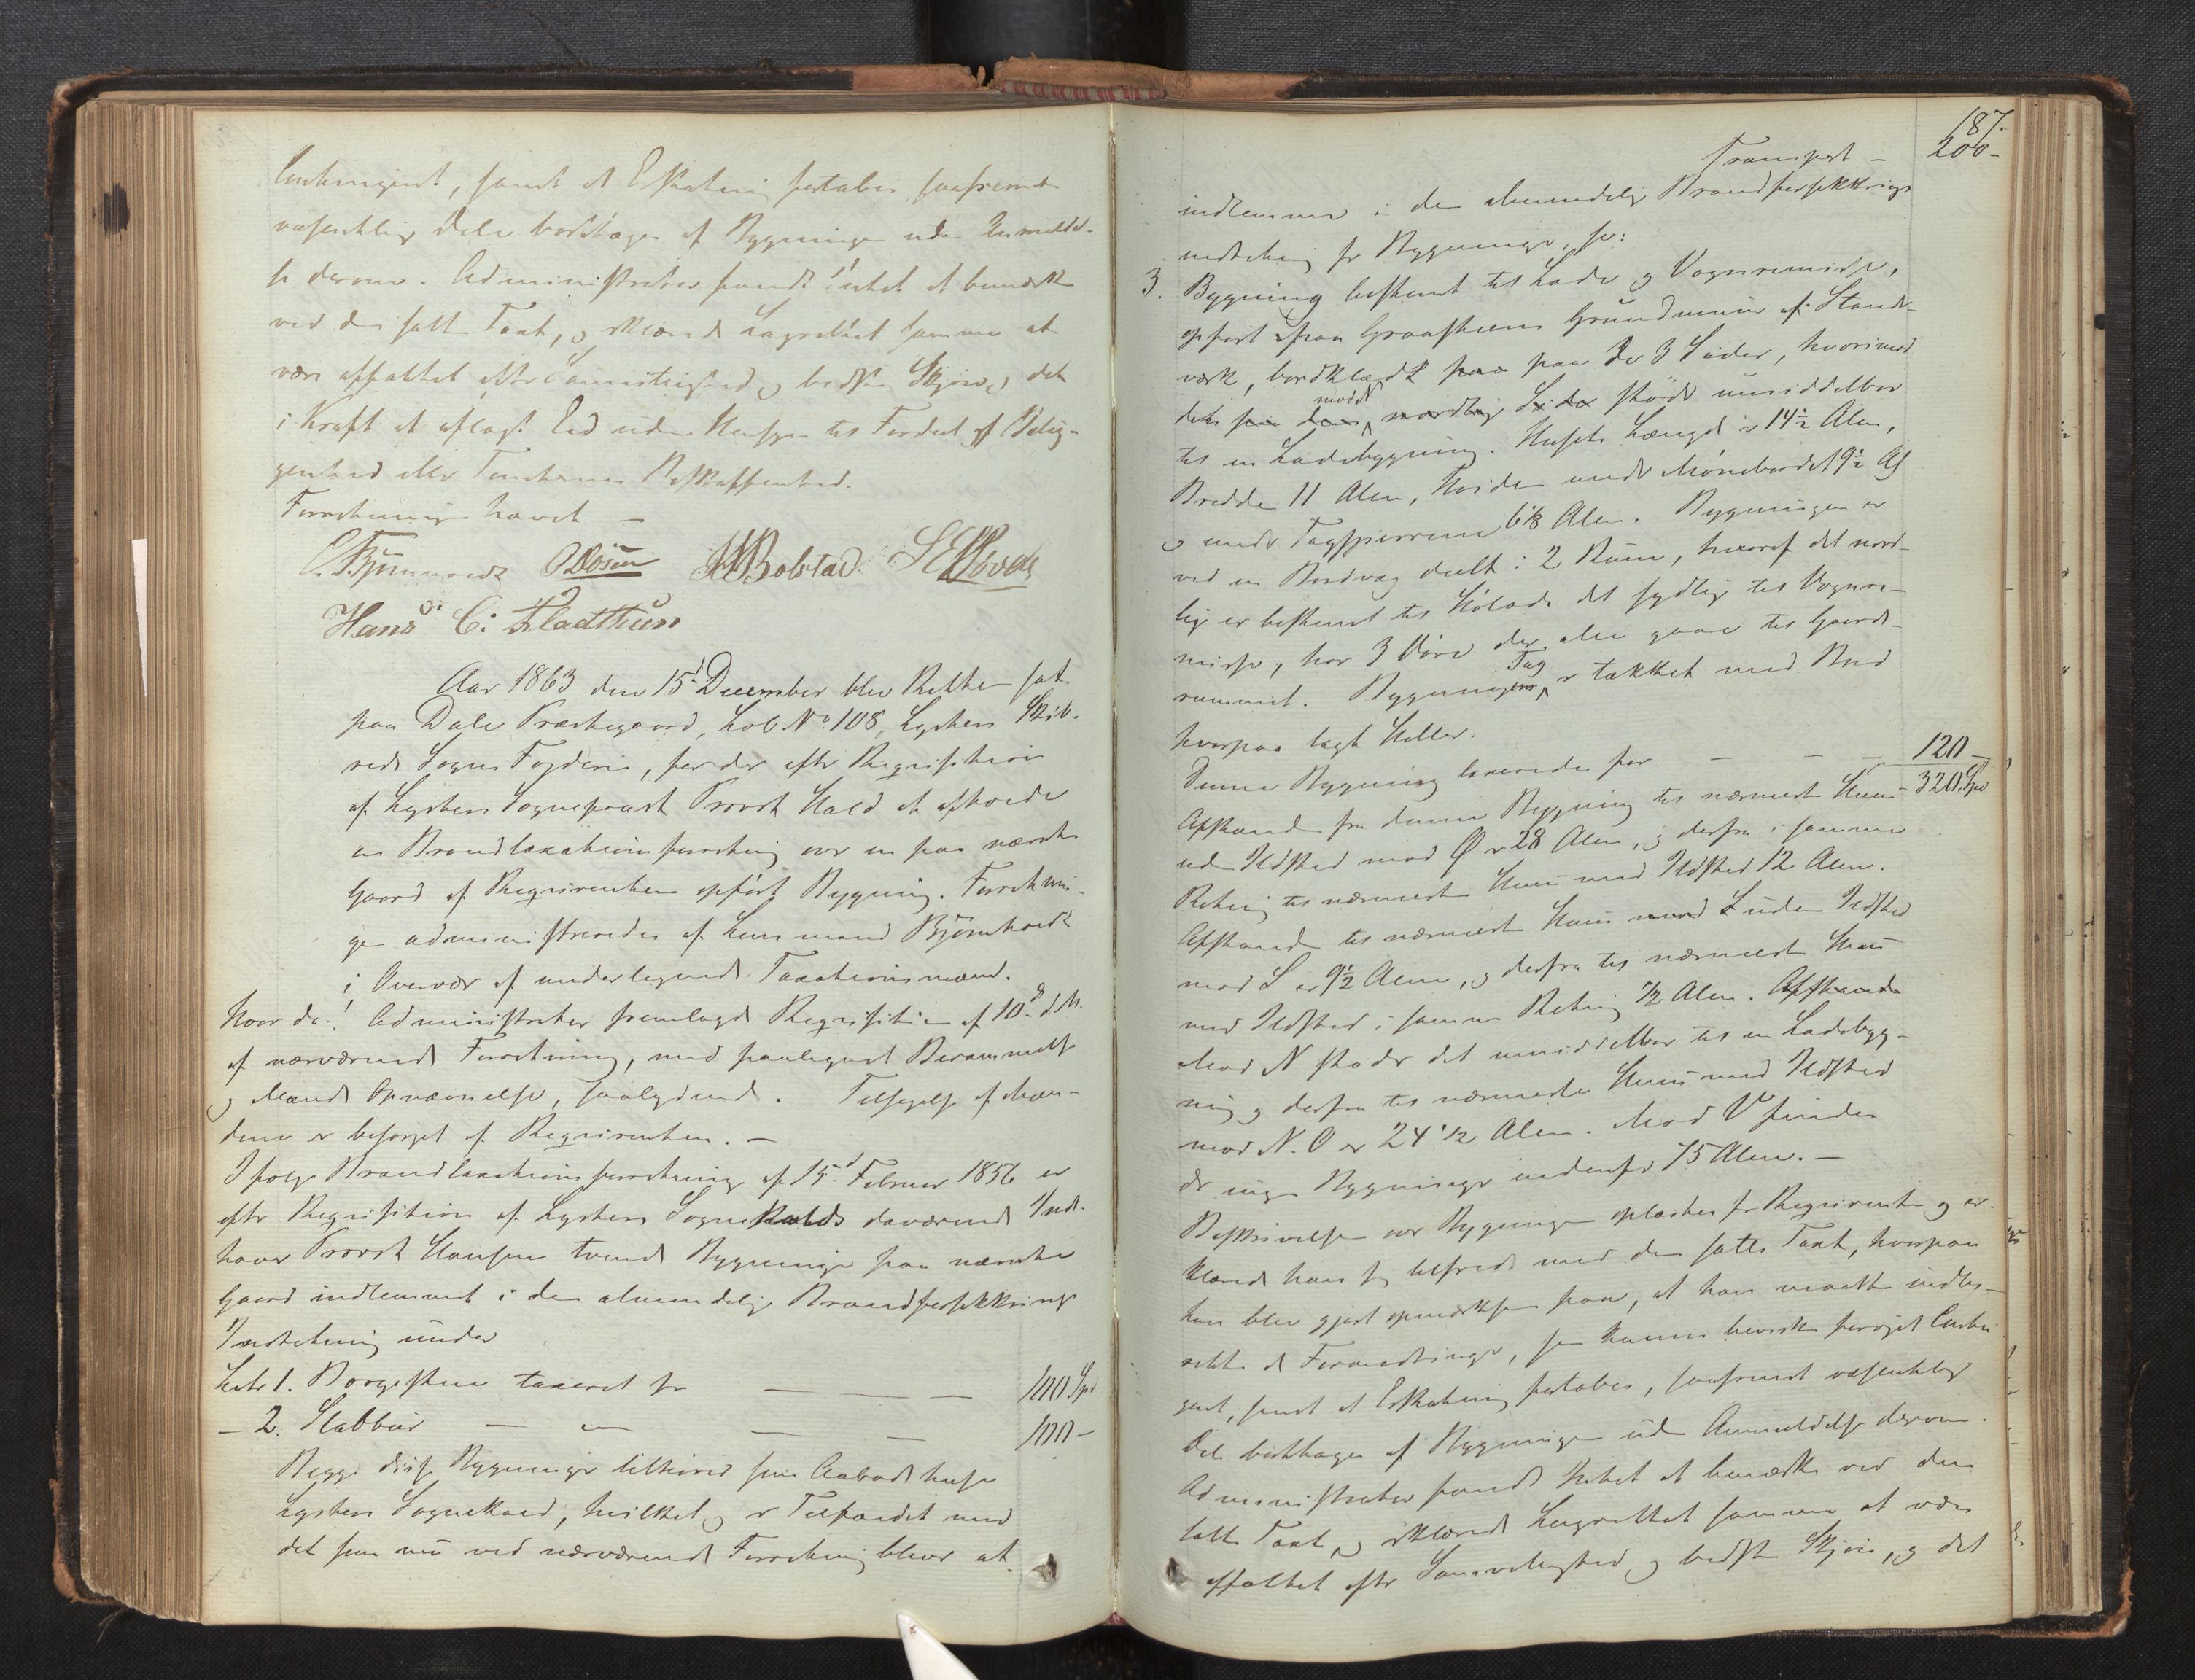 Contingent, samt at Erstatning fortabes saafremt
væsentlige Dele borttages af Bygningen uden Anmeldel-
se derom. Administrator fandt Intet at bemærke
ved den satte Taxt, og erklærede Lagrettet samme at
være affattet efter Samvittighed og bedste Skjøn, og det
i Kraft af aflagt Ed uden Hensyn til Fordeel af Belig-
genhed eller Tomternes Beskaffenhed.
Forretningen hævet —
Hans C: Fladthun
Aar 1863 den 15d December blev Retten sat
paa Dale Præstegaard, Løb No 108, Lysters Skib-
rede Sogns Fogderie, for der efter Requisition
af Lysters Sognepræst Provst Hald at afholde
en Brandtaxationsforretning over en paa nævnte
Gaard af Requirenten opført Bygning. Forretnin-
gen administreredes af Lensmand Bjørnhardt
i Overvær af undertegnede Taxationsmænd.
Hvor da! Administrator fremlagde Requisition af 10de ds.
af nærværende Forretning, med paategnet Berammelse
og Mænds Opnævnelse, saalydende. Tilsigelse af Mæn-
dene er besørget af Requirenten. —
Ifølge Brandtaxationsforretning af 15d Februar 1856 er
efter Requisition af Lysters Sognekalds daværende Ind-
haver Provst Hansen tvende Bygninger paa nævnte
Gaard indlemmet i den almindelige Brandforsikkrings
Indretning under
Litr 1. Borgestue taxeret for — — — 100 Spd
— 2. Stabbur — — — — 100 —
Begge disse Bygninger tilhører som Aabodshuse
Lysters Sognekald, hvilket og er Tilfældet med
det som nu ved nærværende Forretning bliver at
187.
Transport — 200 —
indlemme i den almindelige Brandforsikkrings
indretning for Bygninger, se:
3. Bygning bestemt til Lade og Vognremise,
opført paa Graasteens Grundmuur af Stav-
værk, bordklædt paa de 3 Sider, hvorimod
det paa den mod nordlige Side støder umiddelbar
til en Ladebygning. Husets Længde er 14½ Alen,
Bredde 11 Alen, Høiden under Mønebordet 9½ Al
og under Tagsperrene 6⅛ Alen. Bygningen er
ved en Bordvæg deelt i 2 Rum, hvoraf det nord-
lige er bestemt til Hølade det sydlige til Vognre-
misse, har 3 Døre der alle gaae til Gaards-
rummet. Bygningens Tag er tækket med Bord
hvorpaa lagt Heller.
Denne Bygning taxeredes for — — — 120 —
320 Spd
Afstand fra denne Bygning til nærmeste Huus
uden Ildsted mod Ø er 28 Alen, og derfra i samme
Retning til nærmeste Huus med Ildsted 12 Alen.
Afstand til nærmeste Huus uden Ildsted
mod S er 9½ Alen, og derfra til nærmeste Huus
med Ildsted i samme Retning ½ Alen. Afstand
Mod N støder det umiddelbar til en Ladebyg-
ning og derfra til nærmeste Huus med Ildsted
mod N.O er 24 1/2 Alen. Mod V findes
der ingen Bygninger indenfor 75 Alen. —
Beskrivelsen over Bygningen oplæstes for Requirenten og er-
klærede han sig tilfreds med den satte Taxt, hvorpaa
han blev gjort opmærksom paa, at han maatte indbe-
rette de Forandringer, som kunne bevirke forøget Contin-
gent, samt at Erstatning fortabes, saafremt væsentlige
Dele borttages af Bygningen uden Anmeldelse derom.
Administrator fandt Intet at bemærke ved den
satte Taxt, og erklærede Laugrettet samme at være
affattet efter Samvittighed og bedste Skjøn, og det